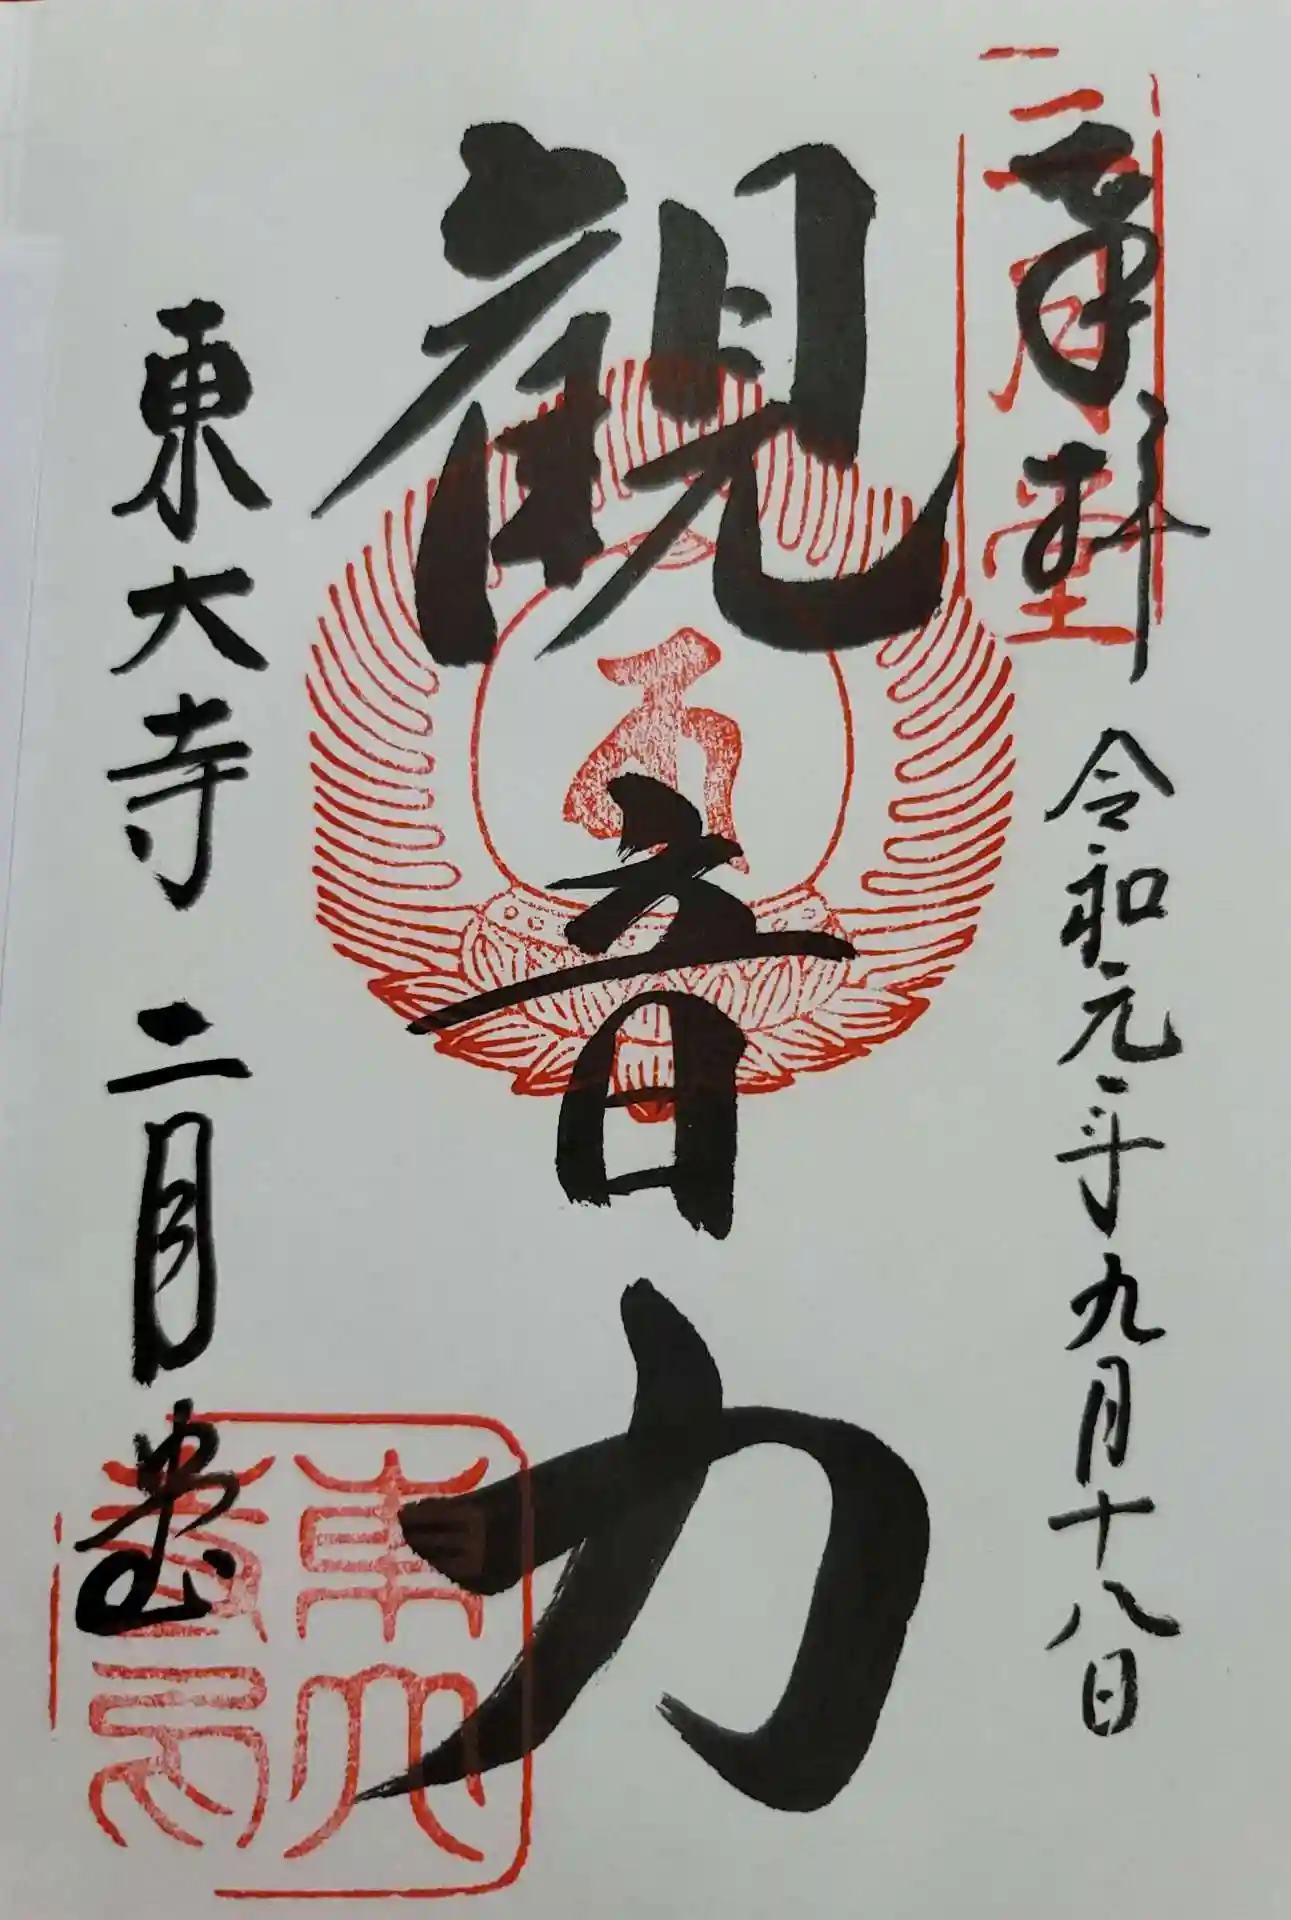 奉拝 令和元年九月十八日
二月堂
観音力
東大寺 二月堂